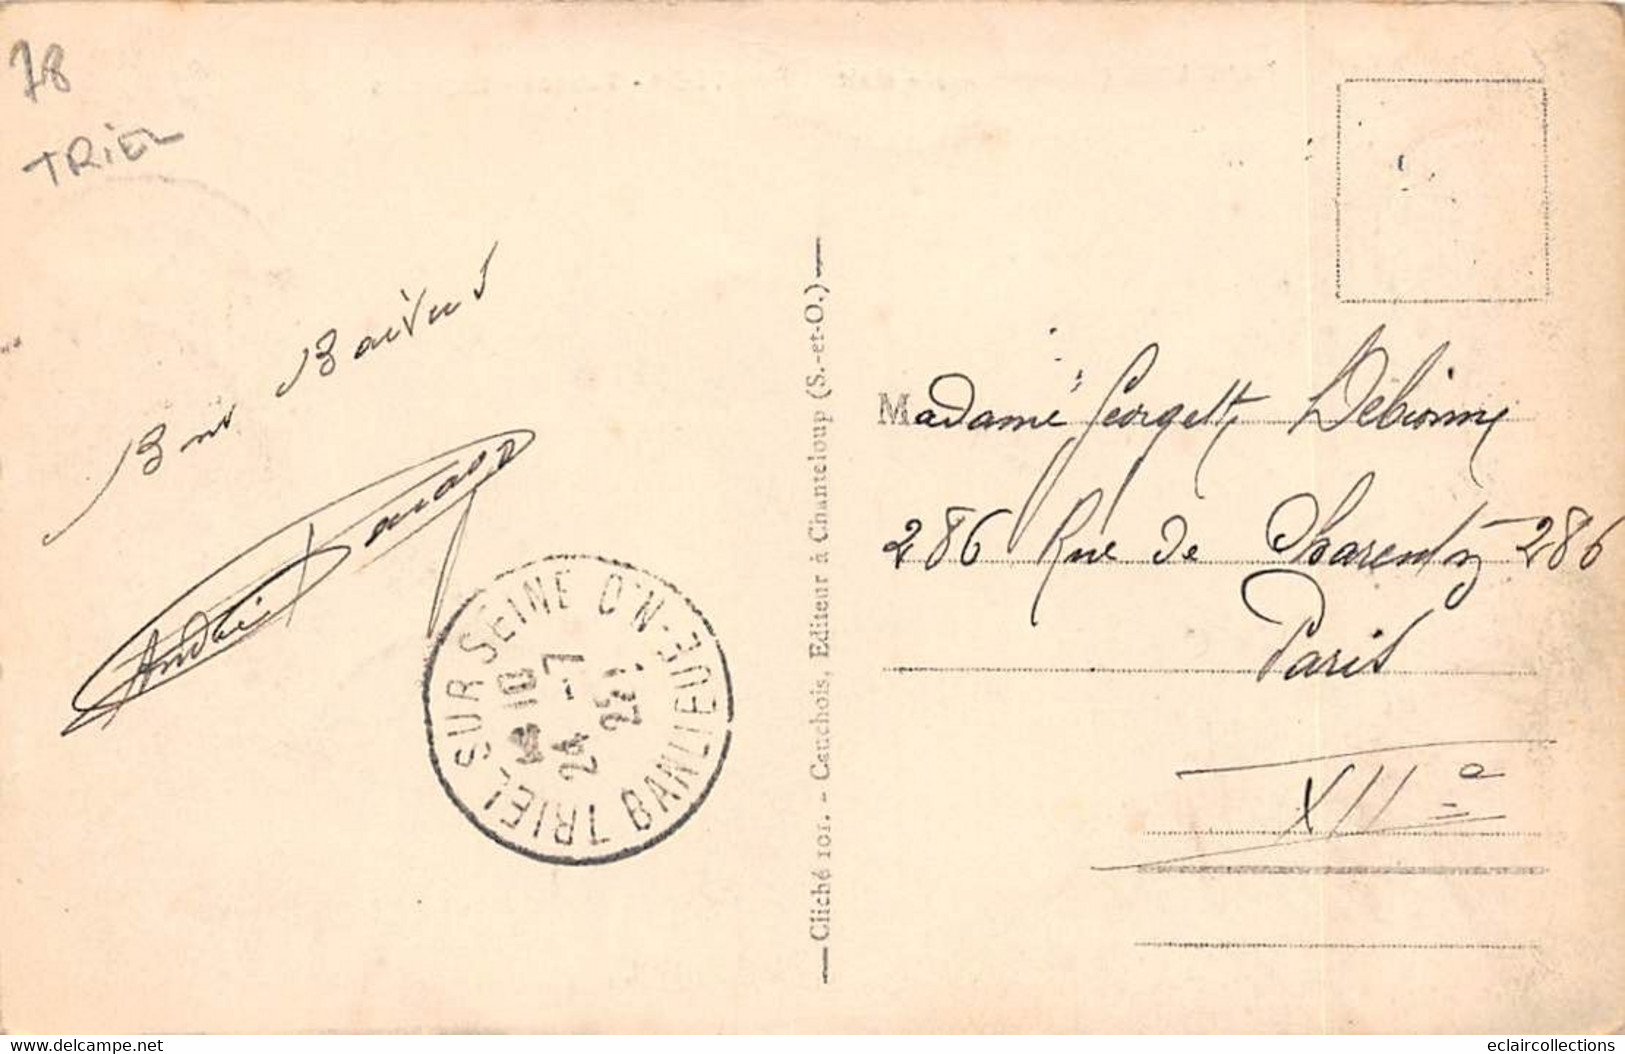 78
TRIEL
Bons Baisers
André
TRIEL SUR SEINE
10
24 -7
25
BANLIEUE-N.O
— Cliché 101. - Cauchois, Editeur à Chanteloup (S.-et-O.) —
Madame Georgette
286 Rue de Charenton 286
Paris
XIIe
delcampe.net
eclaircollections